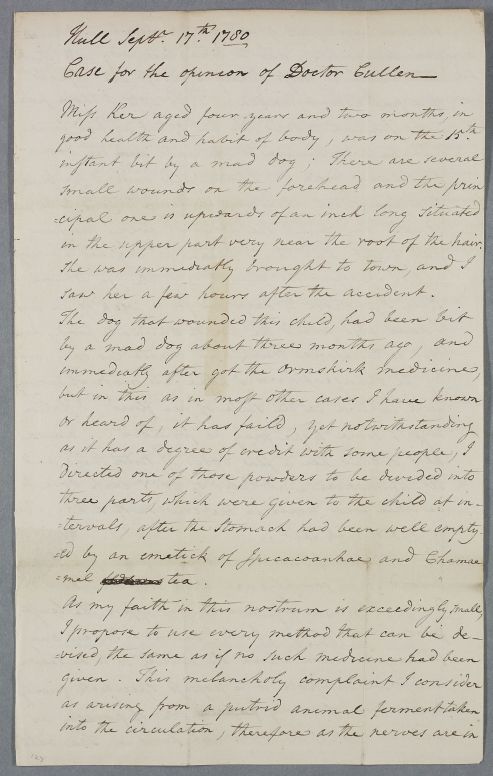 Hull Septr. 17th. 1780
Case for the opinion of Doctor Cullen
Miss Ker aged four years and two months, in
good health and habit of body, was on the 15th.
instant bit by a mad dog; There are several
small wounds on the forehead and the prin
=cipal one is upwards of an inch long situated
in the upper part very near the root of the hair.
She was immediatly brought to town, and I
saw her a few hours after the accident.
The dog that wounded this child, had been bit
by a mad dog about three months ago, and
immediatly after got the Ormskirk medicine,
but in this as in most other cases I have known
or heard of, it has faild, yet notwithstanding
as it has a degree of credit with some people, I
Directed one of those powders to be divided into
three parts, which were given to the child at in-
=tervals, after the Stomach had been well empty-
=ed by an emetick of Ipicacoanhae and Chamae
=mel tea.
As my faith in this nostrum is exceedingly small,
I propose to use every method that can be de-
=vised, the same as if no such medicine had been
given. This melancholy complaint I consider
as arising from a putrid animal ferment taken
into the circulation, therefore as the nerves are in